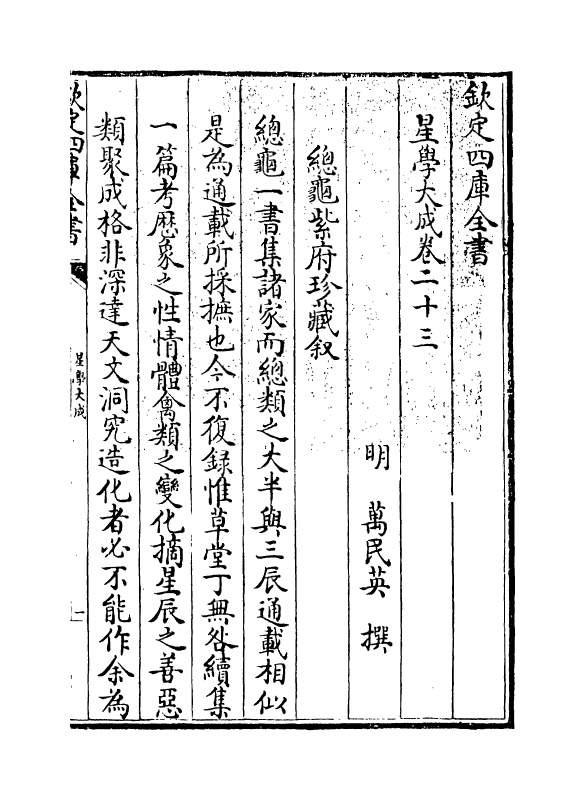 欽定四庫全書
星學大成卷二十三
明　萬民英　撰
總龜紫府珍藏叙
總龜一書集諸家而總類之大半與三辰通載相似
是為通載所採摭也今不復録惟草堂丁無咎續集
一篇考歴象之性情體禽類之變化摘星辰之善惡
類聚成格非深達天文洞究造化者必不能作余為
欽定四庫全書
星學大成
一